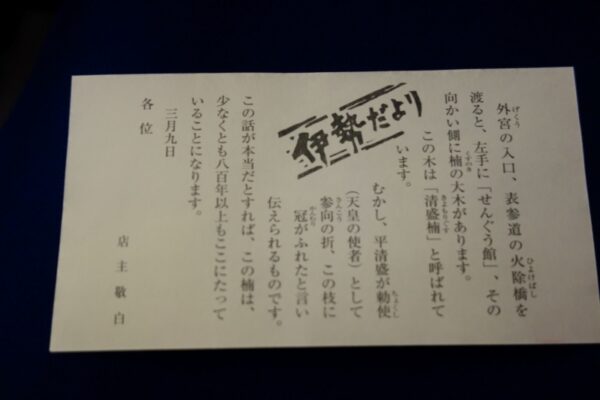 外宮の入口、表参道の火除橋を
渡ると、左手に「せんぐう館」、その
向かい側に楠の大木があります。
この木は「清盛楠」と呼ばれて
います。
伊勢だより
むかし、平清盛が勅使
（天皇の使者）として
参向の折、この枝に
冠がふれたと言い
伝えられるものです。
この話が本当だとすれば、この楠は、
少なくとも八百年以上もここにたって
いることになります。
三月九日
各位
店主敬白